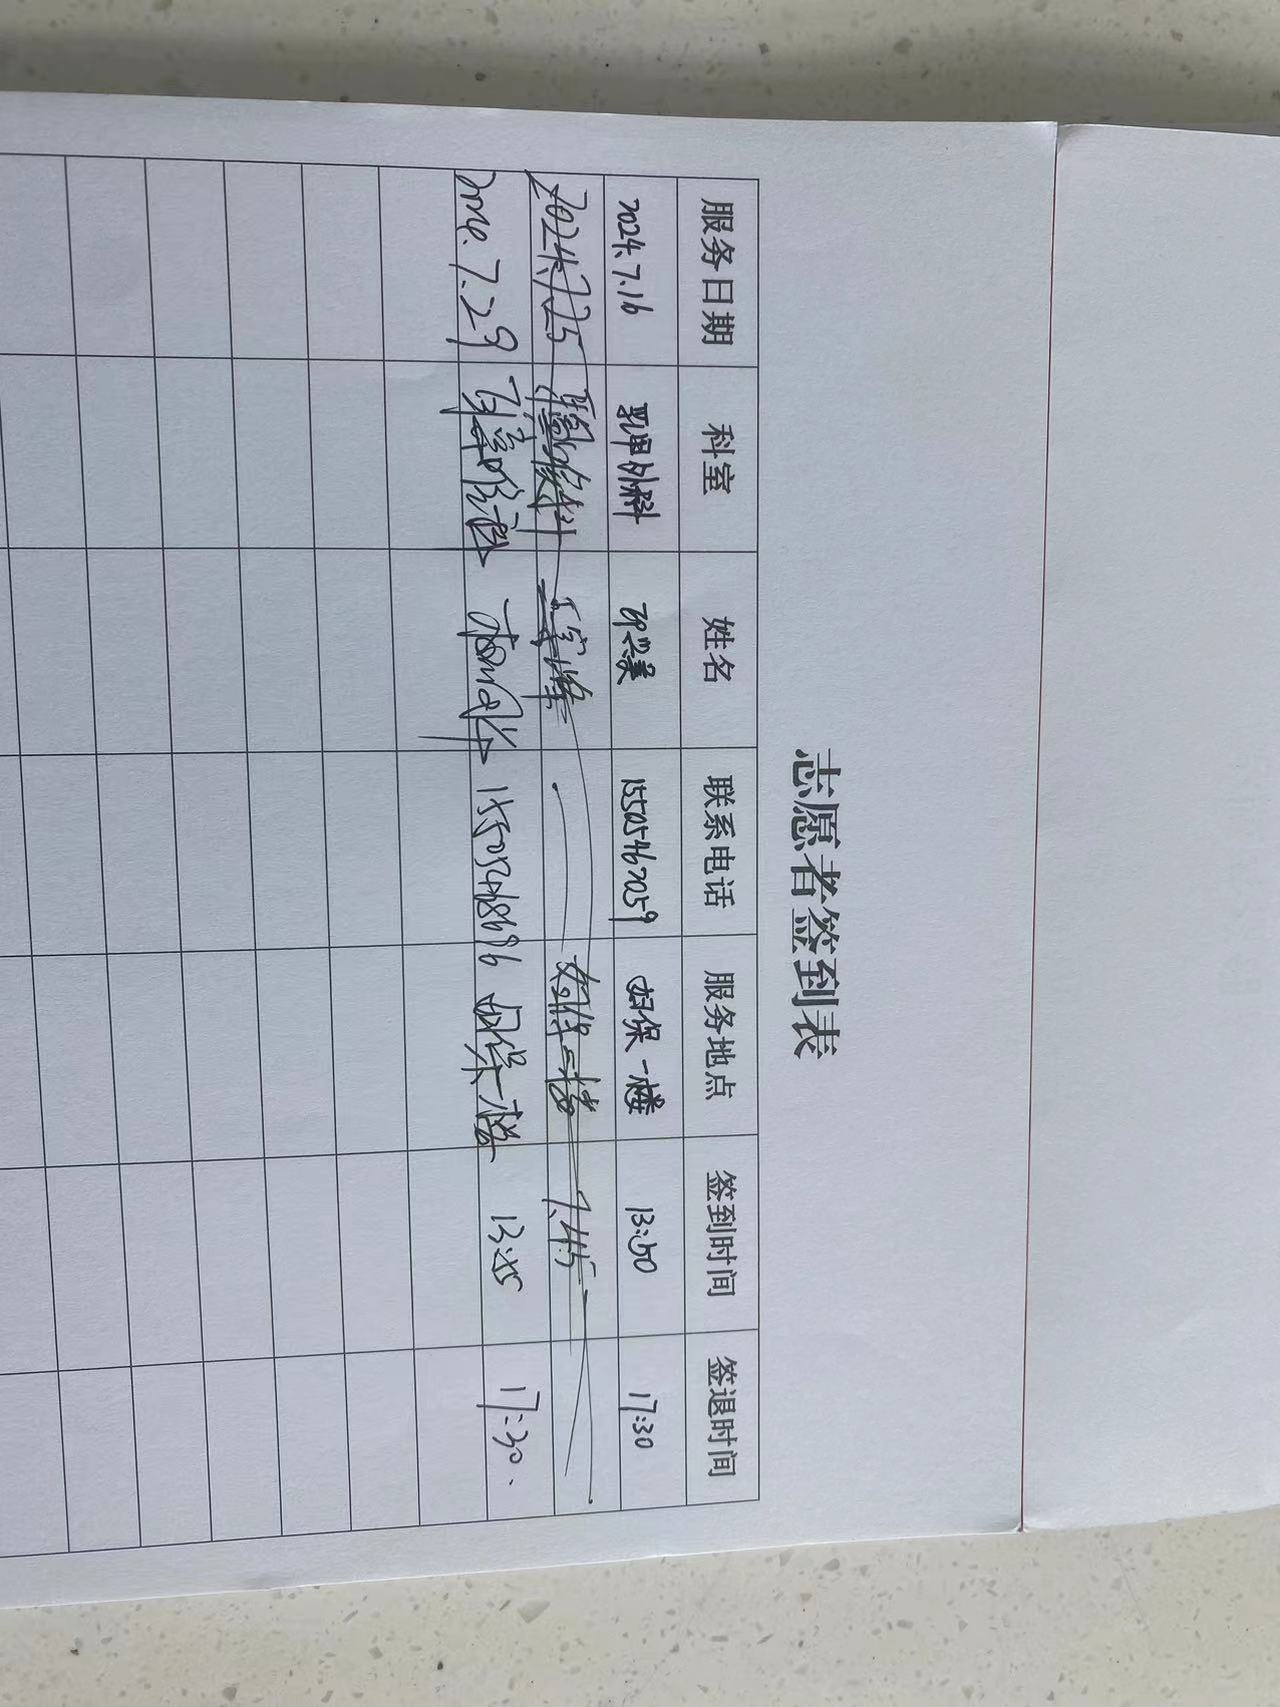 志愿者签到表
服务日期 科室 姓名 联系电话 服务地点 签到时间 签退时间
2024.7.16 乳甲外科 15505467059 妇保一楼 13:50 17:30
2024.7.25 7.45
2024.7.29 15505468696 妇保一楼 13:55 17:30.